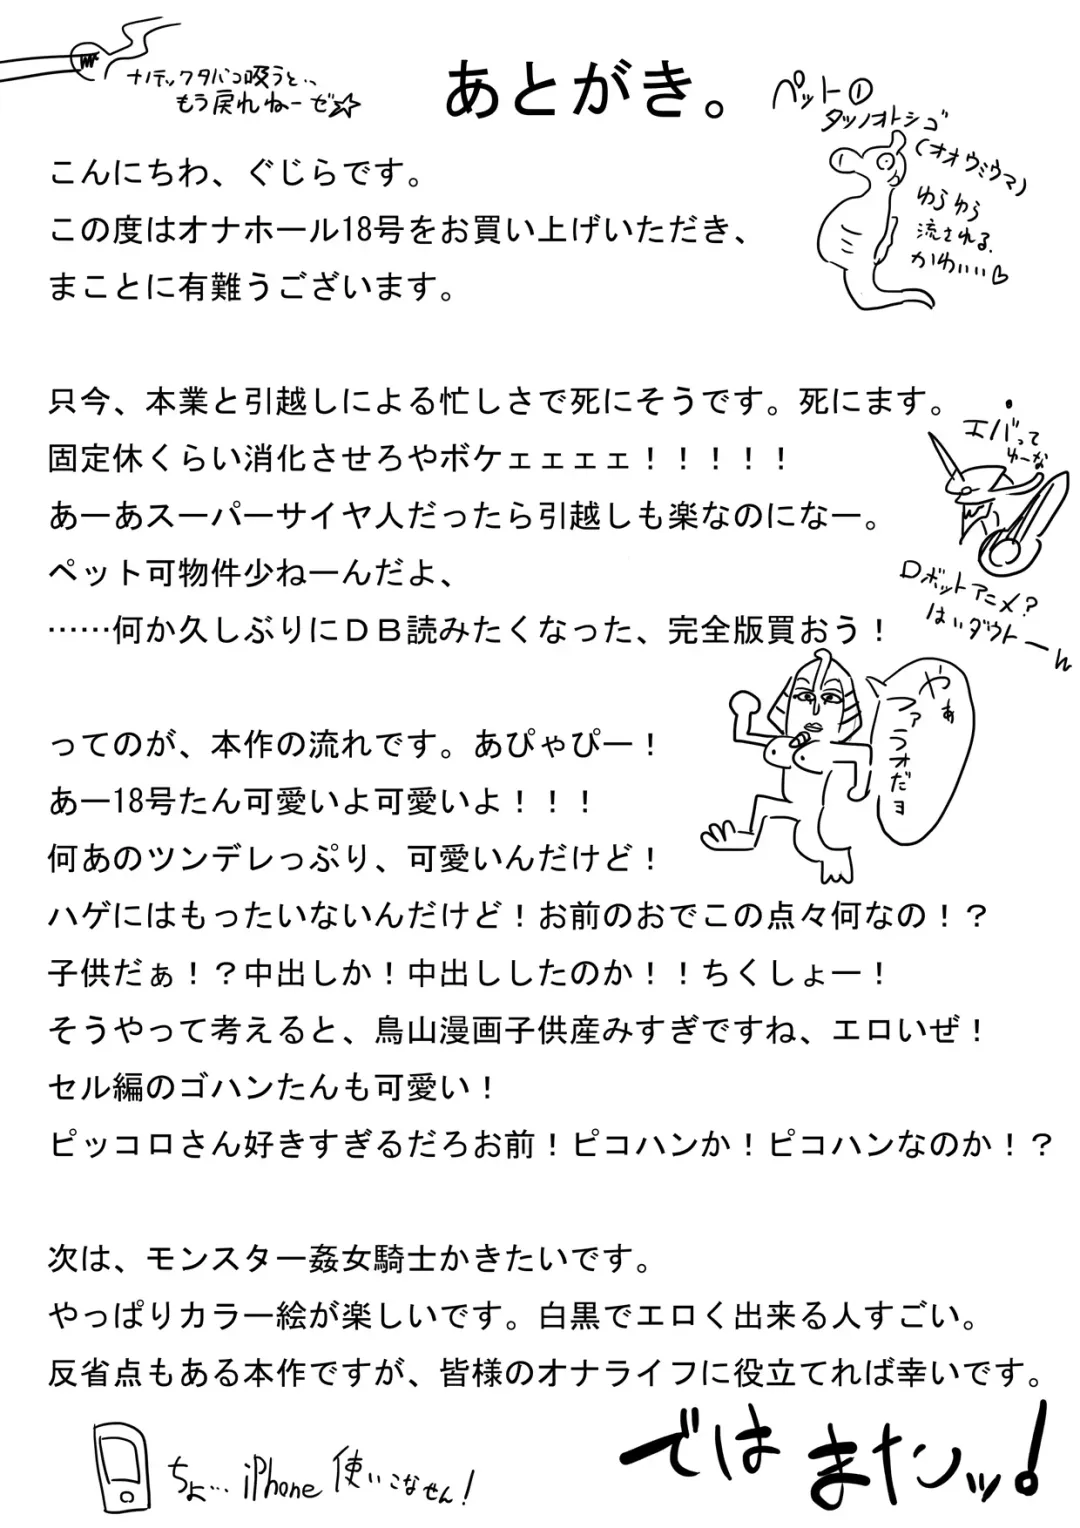 ナノテックタバコ吸うと…
もう戻れねーぜ☆
あとがき。
ペット①
タツノオトシゴ
(オオウミウマ)
ゆらゆら
流される。
かわいい♡
こんにちわ、ぐじらです。
この度はオナホール18号をお買い上げいただき、
まことに有難うございます。
只今、本業と引越しによる忙しさで死にそうです。死にます。
固定休くらい消化させろやボケェェェェ！！！！！
あーあスーパーサイヤ人だったら引越しも楽なのになー。
ペット可物件少ねーんだよ、
……何か久しぶりにＤＢ読みたくなった、完全版買おう！
エバって
ゆーな
ロボットアニメ？
はいダウトーん
やぁ
ファラオだョ
ってのが、本作の流れです。あぴゃぴー！
あー18号たん可愛いよ可愛いよ！！！
何あのツンデレっぷり、可愛いんだけど！
ハゲにはもったいないんだけど！お前のおでこの点々何なの！？
子供だぁ！？中出しか！中出ししたのか！！ちくしょー！
そうやって考えると、鳥山漫画子供産みすぎですね、エロいぜ！
セル編のゴハンたんも可愛い！
ピッコロさん好きすぎるだろお前！ピコハンか！ピコハンなのか！？
次は、モンスター姦女騎士かきたいです。
やっぱりカラー絵が楽しいです。白黒でエロく出来る人すごい。
反省点もある本作ですが、皆様のオナライフに役立てれば幸いです。
ちょ…iPhone使いこなせん！
ではまたッ！